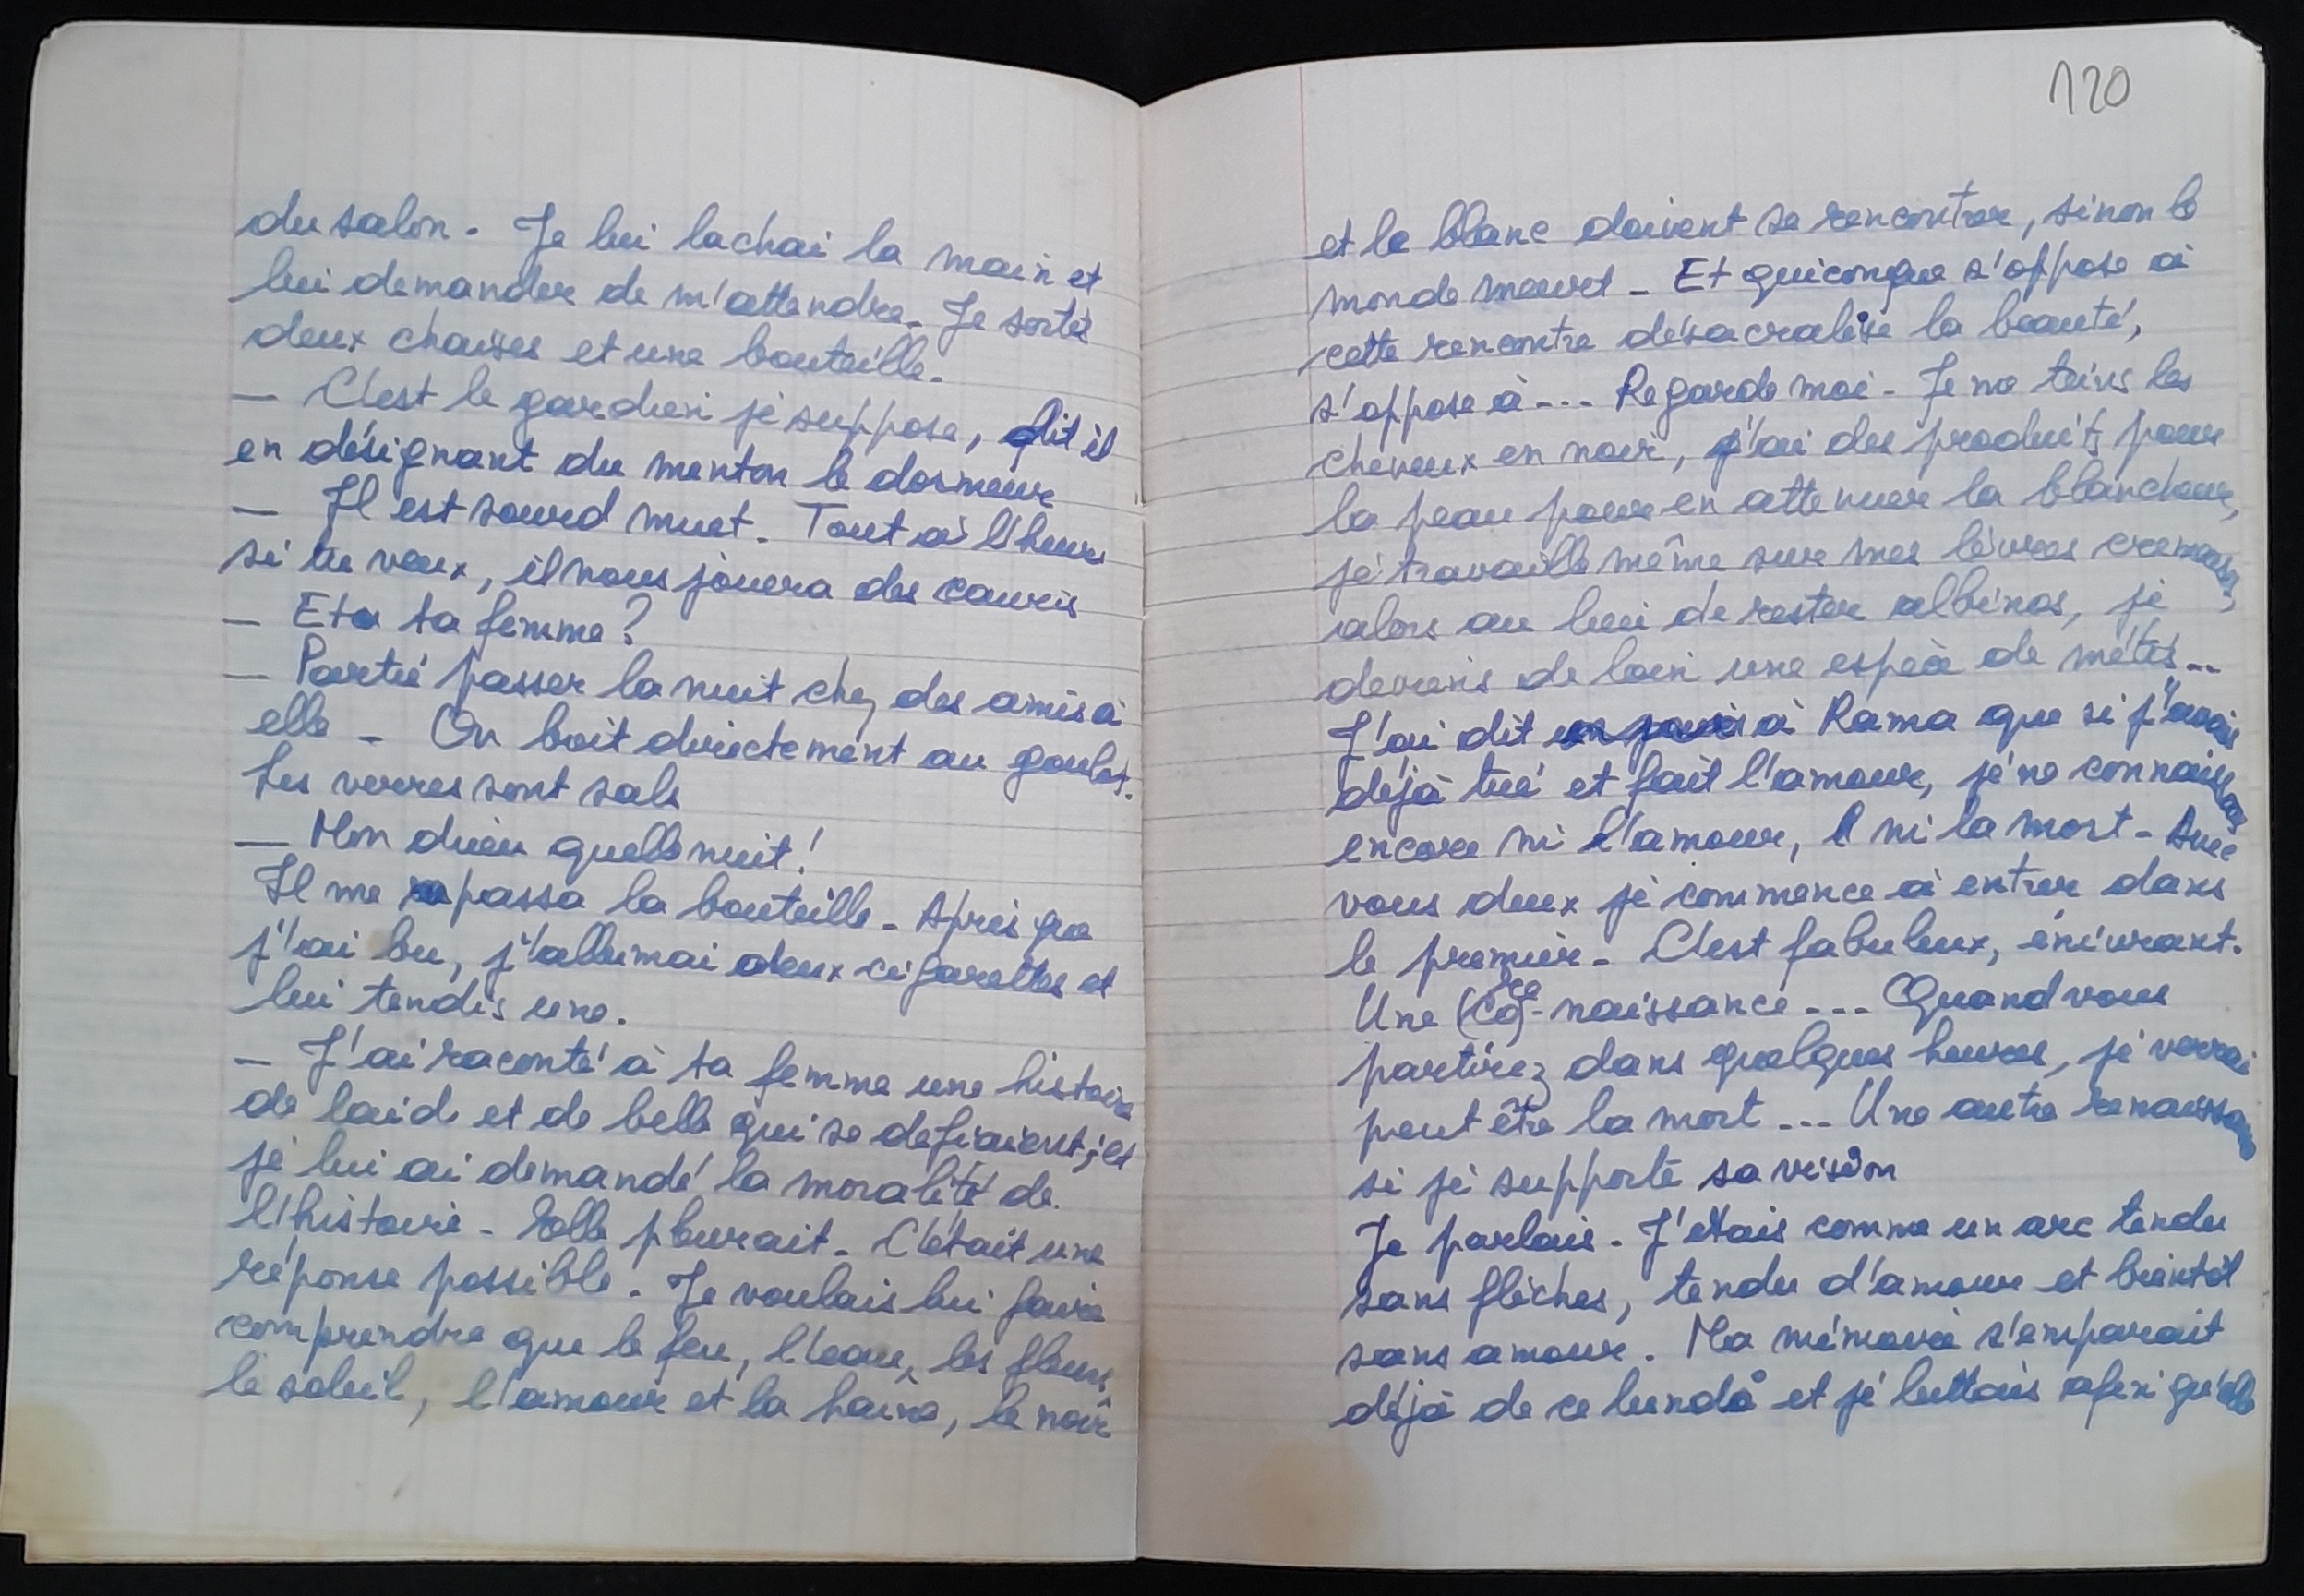 du salon. Je lui lachai la main et
lui demander de m'attendre. Je sortis
deux chaises et une bouteille.
— C'est le gardien je suppose, dit il
en désignant du menton le dormeur
— Il est sourd muet. Tout à l'heure
si tu veux, il nous jouera des cauris
— Et ta femme?
— Partie passer la nuit chez des amis à
elle - On boit directement au goulot.
Les verres sont sals
— Mon dieu quelle nuit!
Il me passa la bouteille - Après que
j'ai bu, j'allumai deux cigarettes et
lui tendis une.
— J'ai raconté à ta femme une histoire
de laid et de belle qui se defiaient, et
je lui ai demandé la moralité de
l'histoire - Elle pleurait - C'était une
réponse possible. Je voulais lui faire
comprendre que le feu, l'eau, les fleurs,
le soleil, l'amour et la haine, le noir
120
et le blanc doivent se rencontrer, sinon le
monde meurt - Et quiconque s'oppose à
cette rencontre désacralise la beauté,
s'oppose à --- Regarde moi - Je me teins les
cheveux en noir, j'ai des produits pour
la peau pour en attenuer la blancheur,
je travaille même sur mes lèvres
alors au lieu de rester albinos, je
deviens de loin une espèce de métis --
J'ai dit à Rama que si j'avais
déjà tué et fait l'amour, je ne connaissais
encore ni l'amour, ni la mort - Avec
vous deux je commence à entrer dans
le premier - C'est fabuleux, énivrant.
Une (Co)-naissance --- Quand vous
partirez dans quelques heures, je verrai
peut être la mort --- Une autre renaissance
si je supporte sa vision
Je parlais - J'étais comme un arc tendu
sans flèches, tendu d'amour et bientôt
sans amour. Ma mémoire s'emparait
déjà de ce lundi et je luttais afin qu'elle